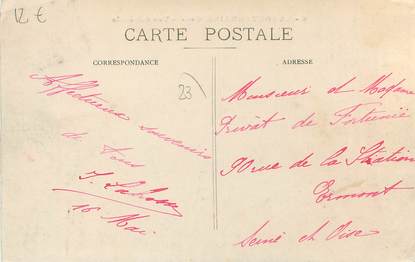 12 €
CARTE POSTALE
CORRESPONDANCE
ADRESSE
23
Affectueux souvenirs
de tous
16 Mai
Monsieur et Madame
Privat de Fortunié
90 rue de la Station
Ermont
Seine et Oise